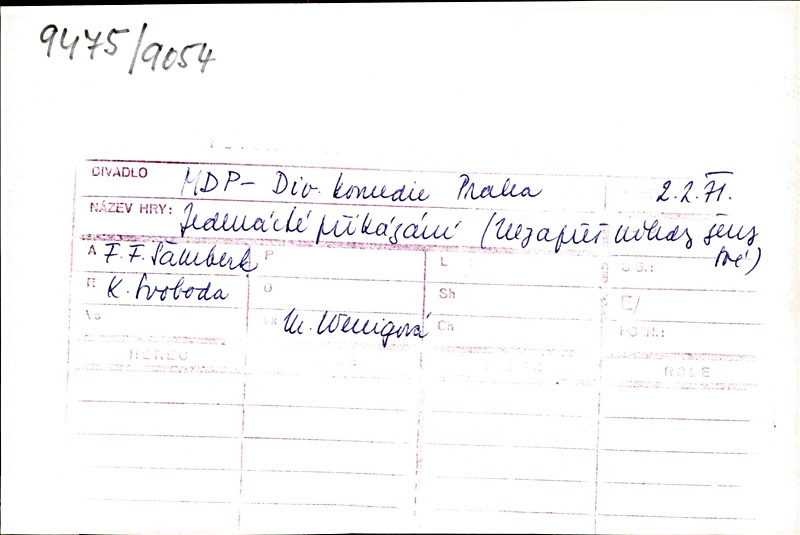 9475/9054
DIVADLO MDP - Div. komedie Praha 2.2.71.
NÁZEV HRY: Jedenácté přikázání (Nezapřeš nikdy ženy
své)
A F. F. Šamberk P L
R K. Svoboda O Sh E/
Vs M. Wenigová Ch POZN.:
HEREC ROLE